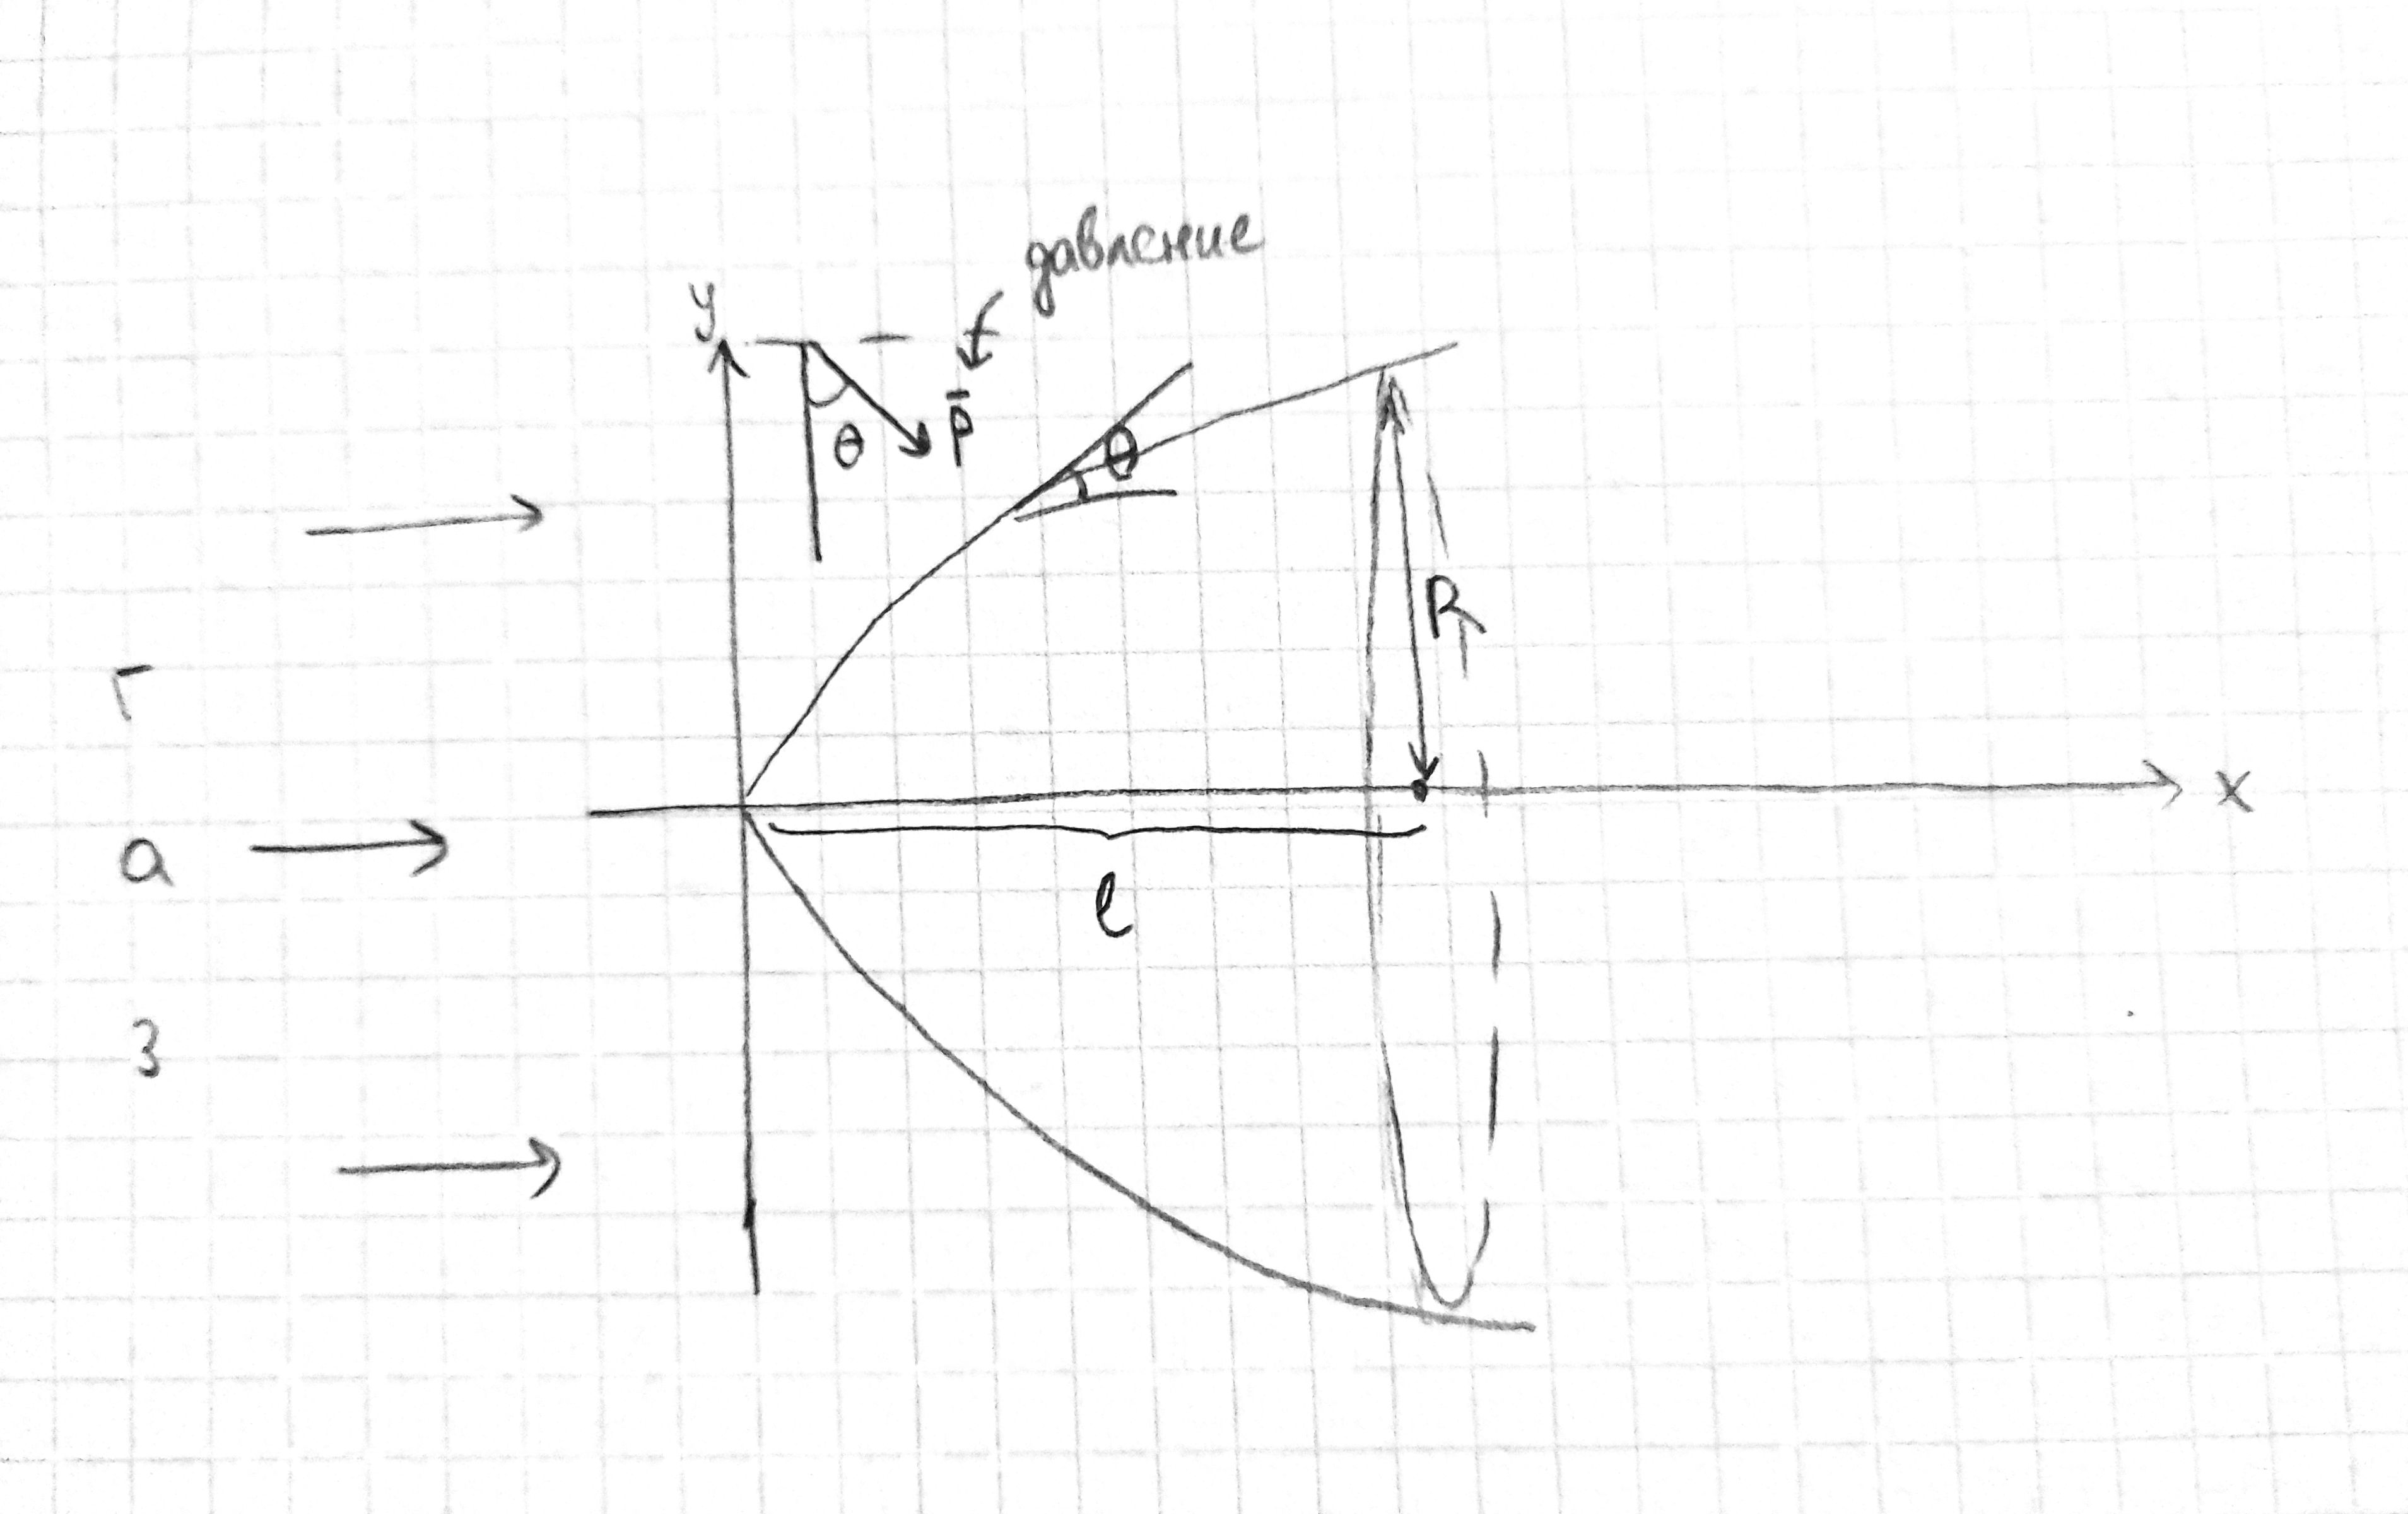 давление
y
p̄
θ
θ
R
Г
а
з
x
l